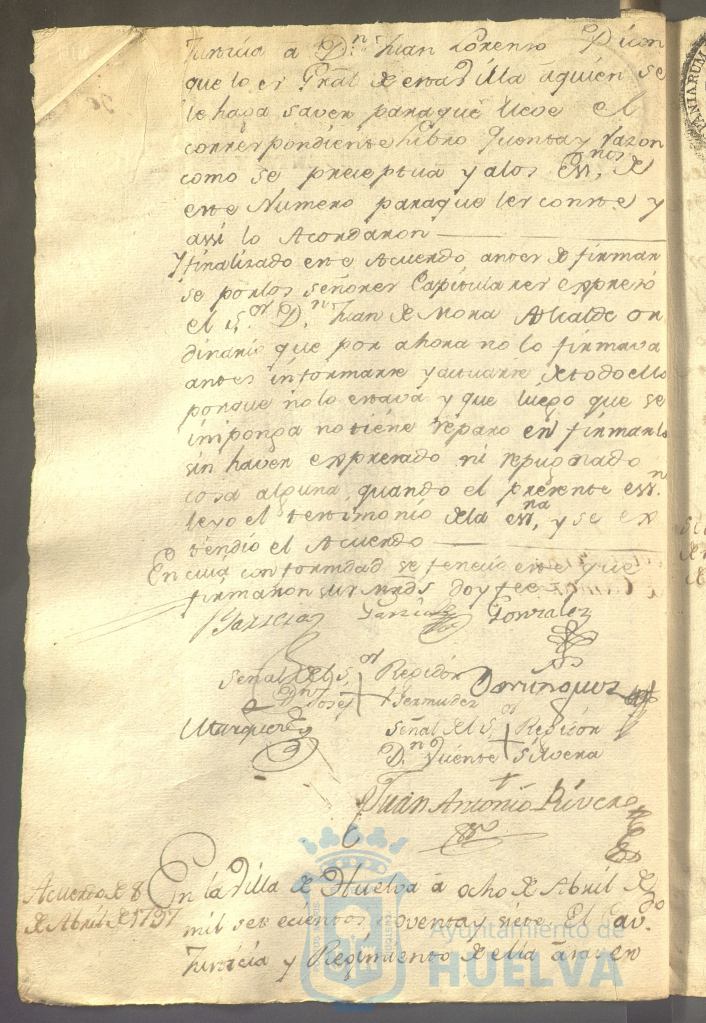 Justicia a D.n Juan Lorenzo Picon
que lo es Gral de esta Villa aquien se
le haga saver paraque lleve el
correspondiente Libro Quenta y razon
como se preceptua y alos Essnos, de
este Numero paraque les conste y
assi lo Acordaron
Y finalizado este Acuerdo antes de firmar
se por los señores Capitulares expresó
el S.or D.n Juan de Mora Alcalde or
dinario que por ahora no lo firmava
antes informarse y actuarse de todo ello
porque no lo estava y que luego que se
imponga no tiene reparo en firmarlo
sin haver expresado ni repugnado
cosa alguna quando el presente essn.
leyo el testimonio de la essna, y se ex
tendió el Acuerdo
En cuia conformidad se fenecio este que
firmaron sus mrds doy fee
Garcia Gonzalez
Señal del S.or Regidor
D.n José + Bermudez
Dominguez
Marquez
Señal del S.or Regidor
D.n Vicente + Silvera
Juan Antonio Rivera
Acuerdo de 8
de Abril de 1797
En la Villa de Huelva á ocho de Abril de
mil setecientos noventa y siete. El Cavdo.
Justicia y Regimiento de ella á sa. en
Ayuntamiento de
HUELVA